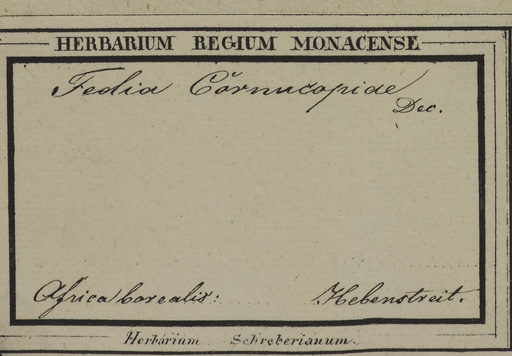 HERBARIUM REGIUM MONACENSE
Fedia Cornucopiae
Dec.
Africa borealis: Hebenstreit.
Herbarium Schreberianum.